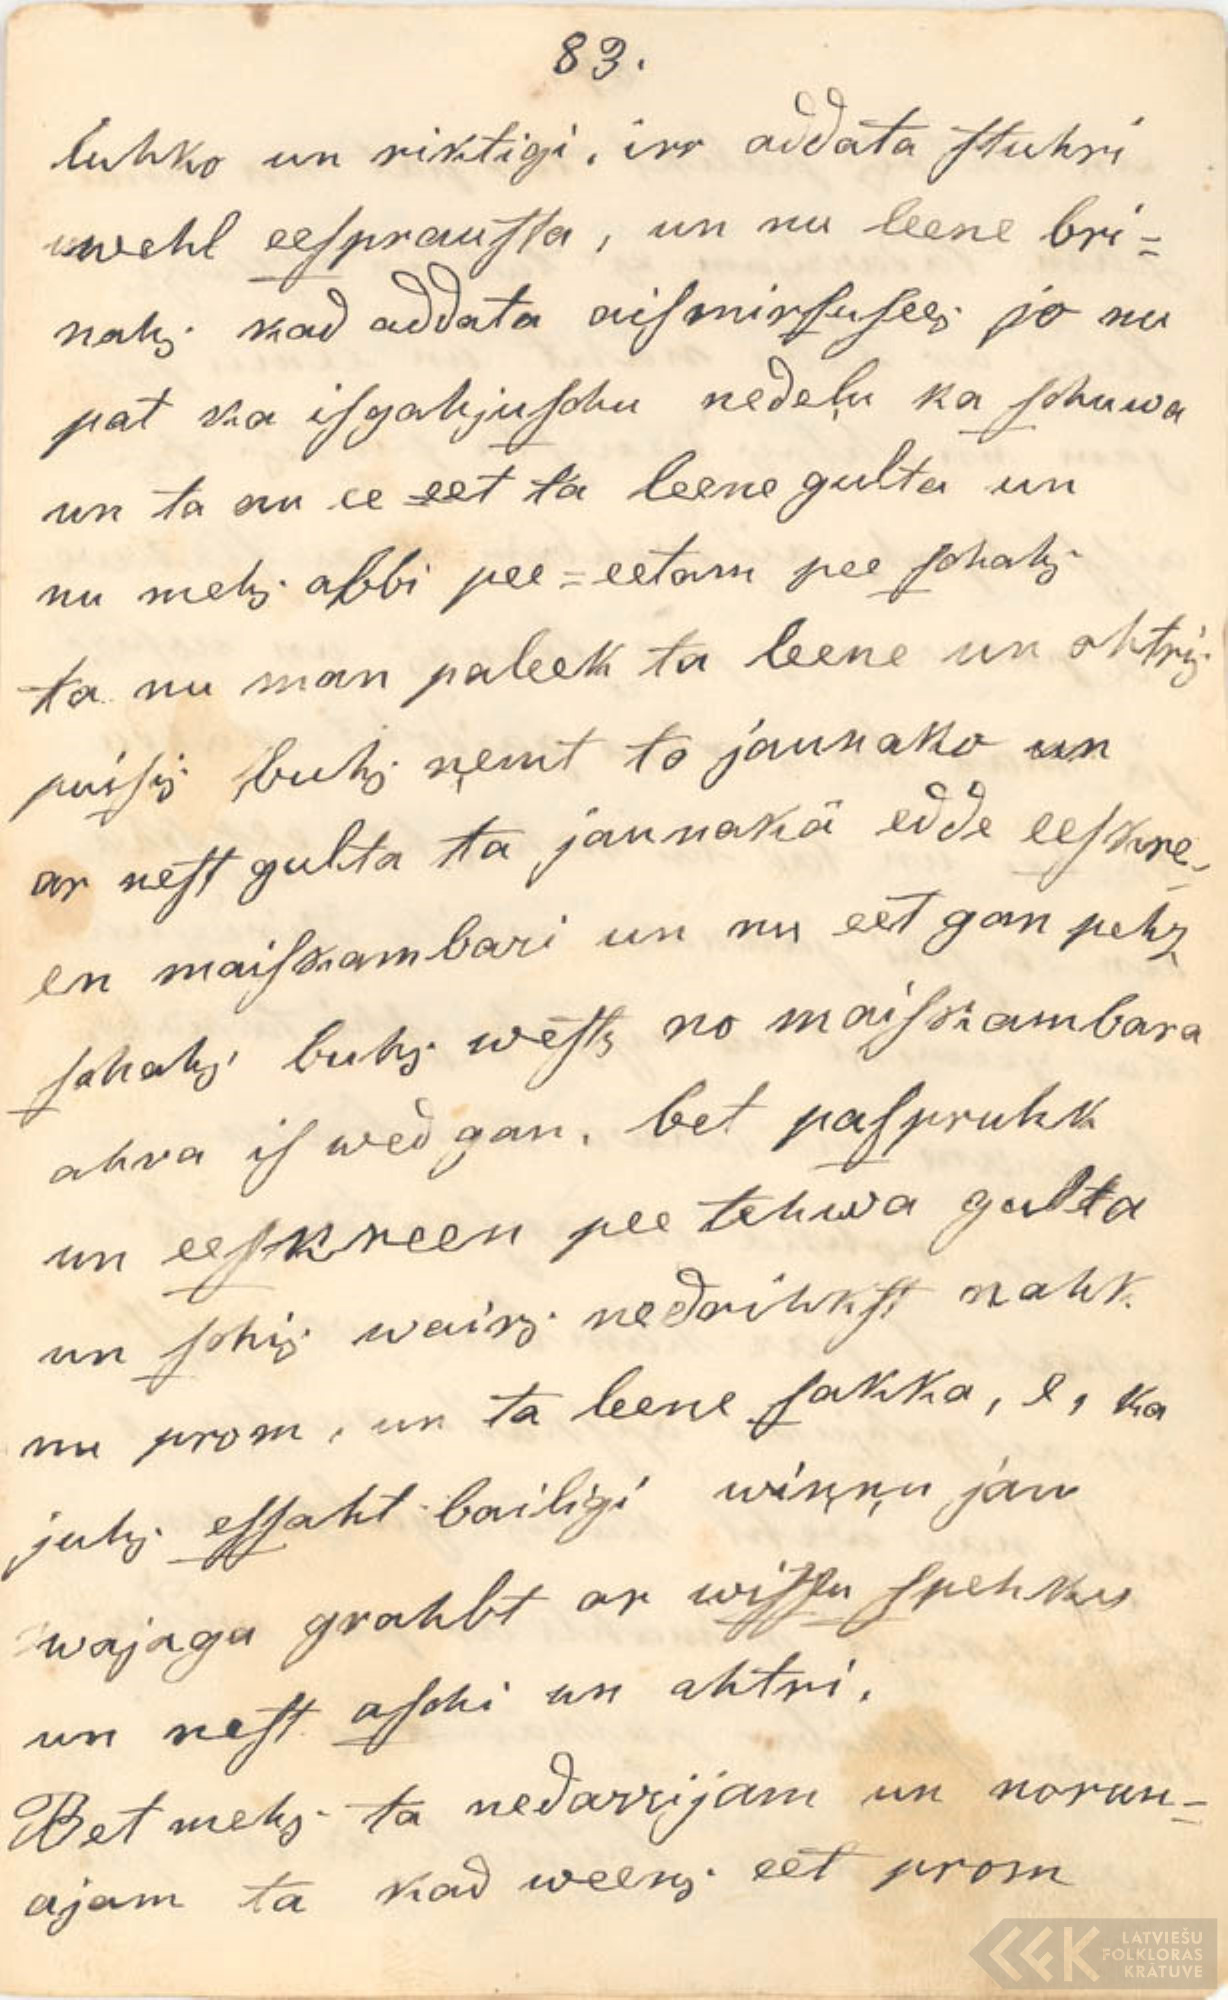 83.
luhko un riktigi, irr addata stuhri
wehl eesprausta, un nu leene bri=
nahs kad addata aismirsusees jo nu
pat ka isgahjuschu nedeļu ka schuwa
un ta nu ee eet ta leene gulta un
nu mehs abbi pee=eetam pee schahs
ta nu man paleek ta leene un ohtris
puisis buhs ņemt to jaunako un
ar nest gulta ta jaunakä edde eeskre-
en maiskambari un nu eet gan pehz
schahs buhs wests no maiskambara
ahra is wed gan, bet paspruhk
un eeskreen pee tehwa gulta
un schis wairs nedrihkst nahk
nu prom, un ta leene sakka, e, ka
juhs essaht bailigi wiņņu jau
wajaga grahbt ar wissu spehku
un nest aschi un ahtri.
Bet mehs ta nedarrijam un norun=
ajam ta kad weens eet prom
LATVIEŠU
FOLKLORAS
KRĀTUVE